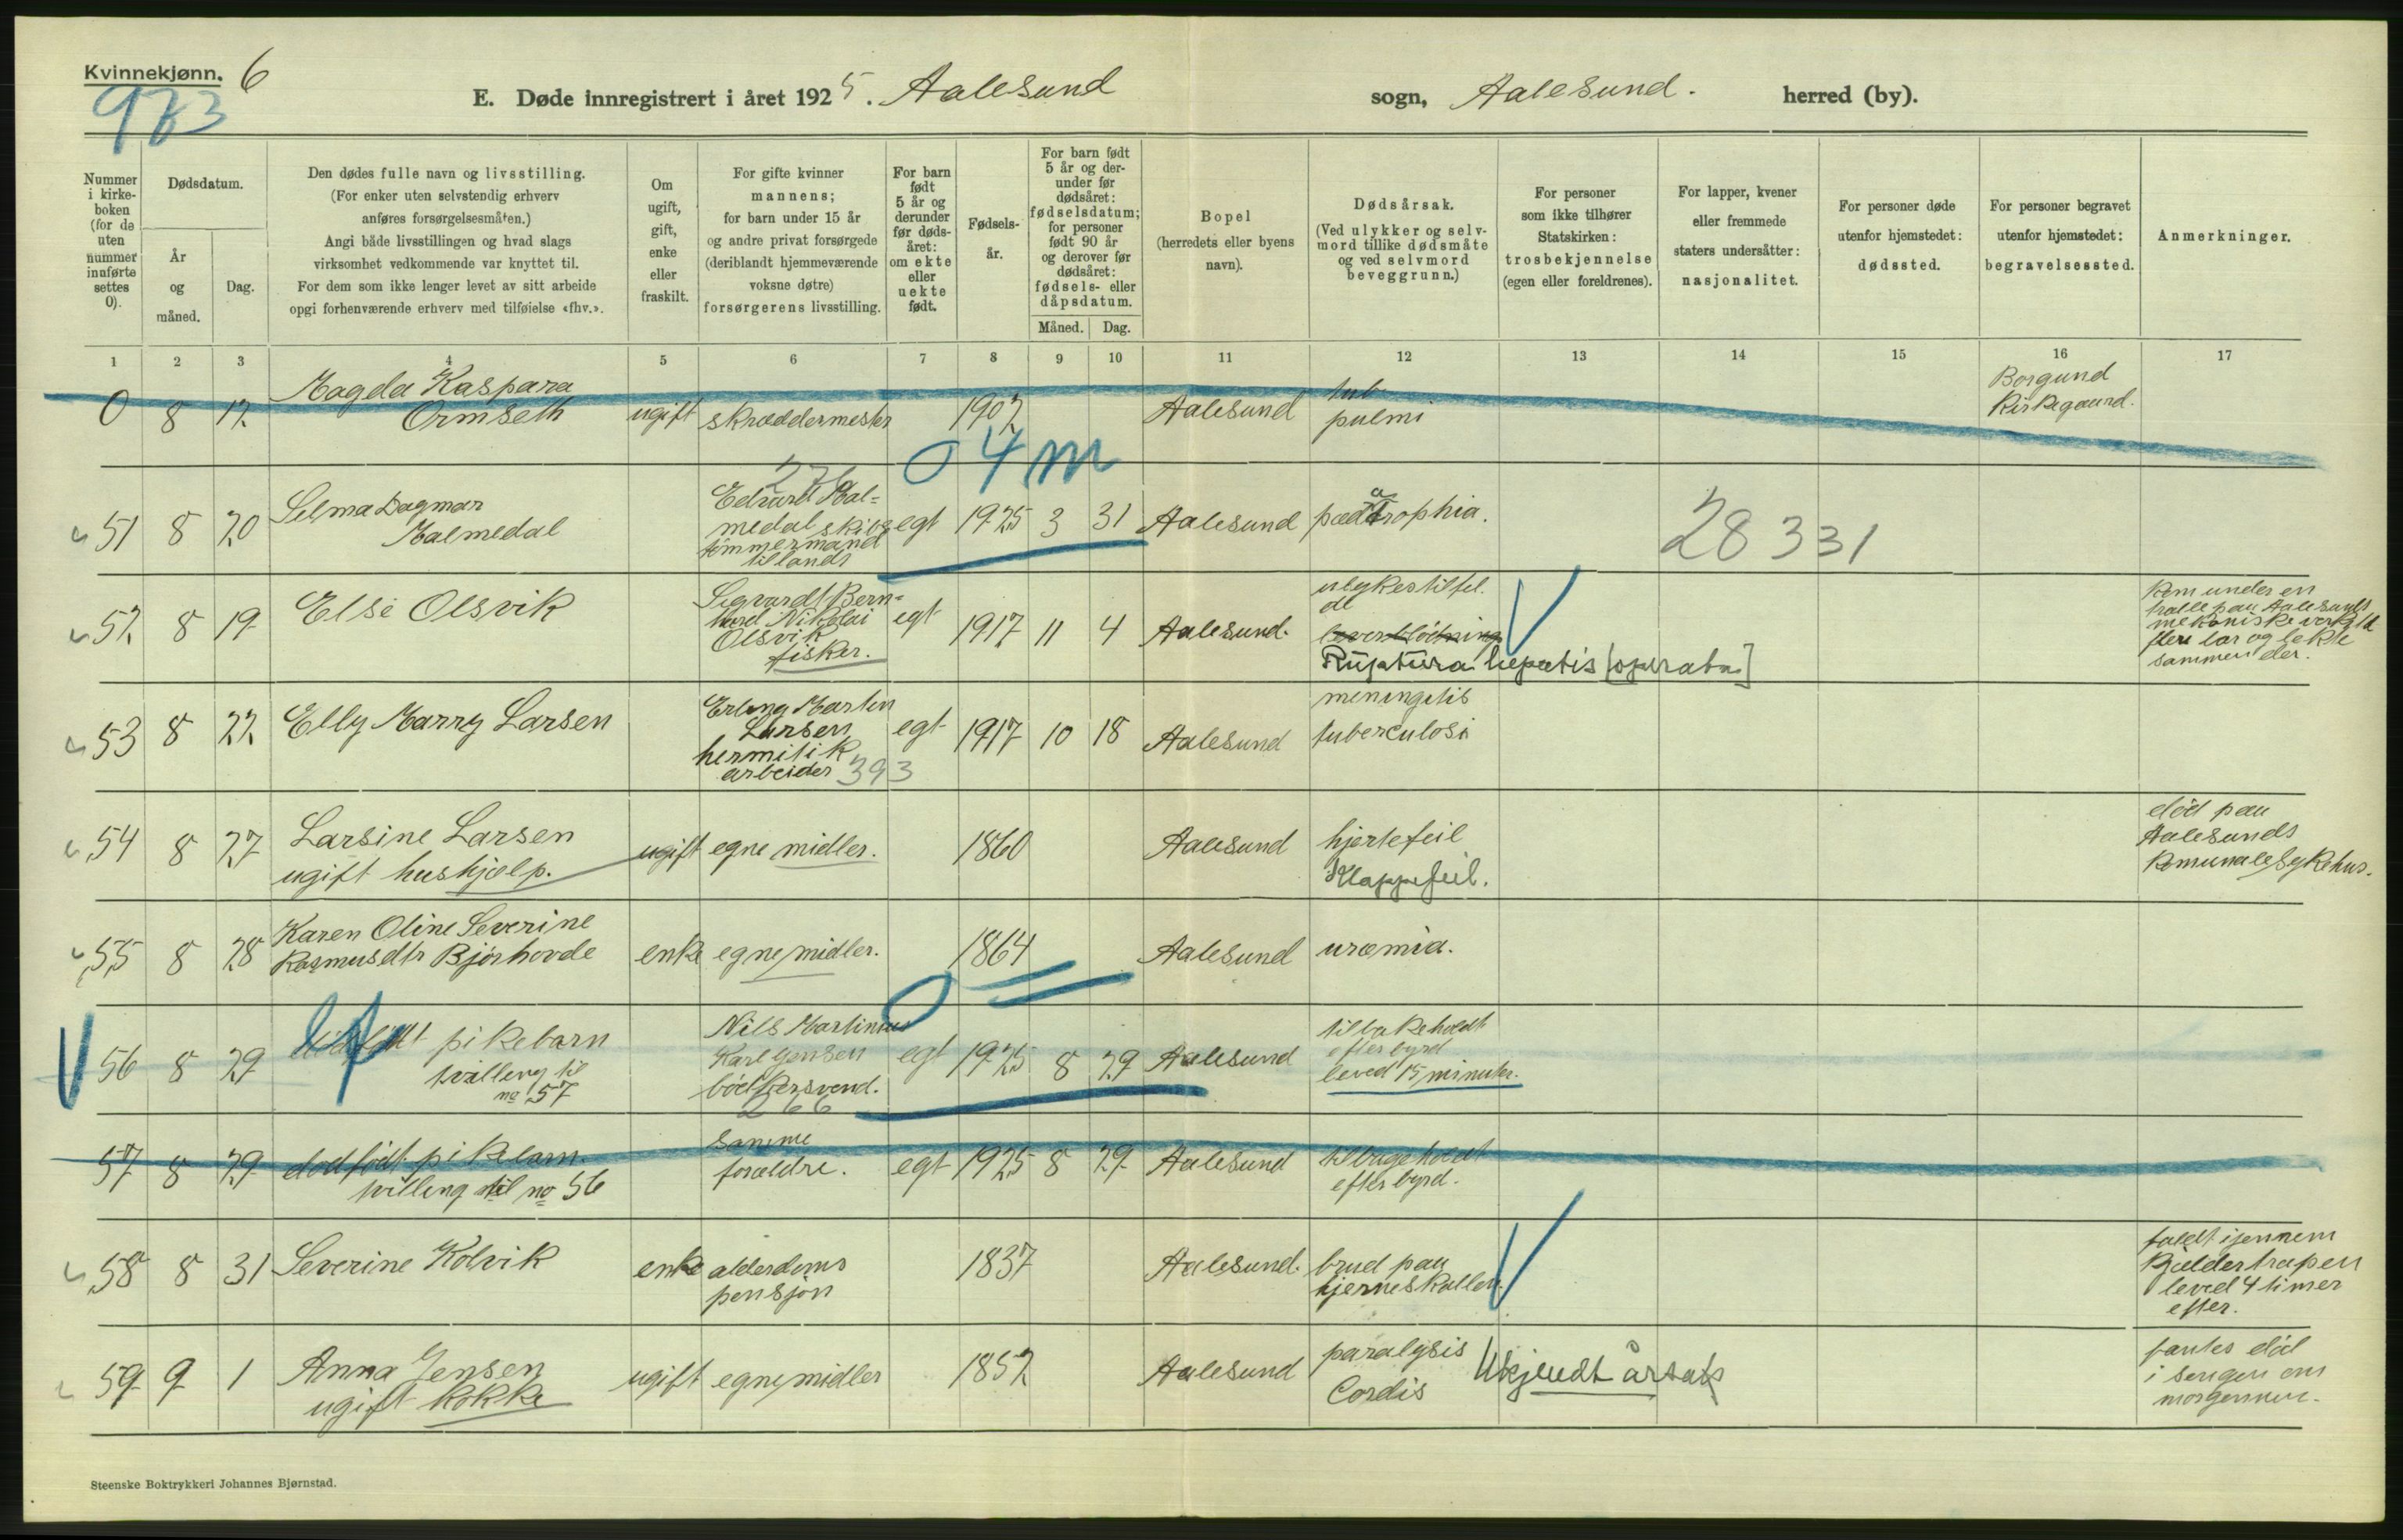 Kvinnekjønn. 6
983
E. Døde innregistrert i året 1925. Aalesund sogn, Aalesund. herred (by).
Nummer i kirkeboken (for de uten nummer innførte settes 0).
Dødsdatum.
År og måned.
Dag.
Den dødes fulle navn og livsstilling.
(For enker uten selvstendig erhverv anføres forsørgelsesmåten.)
Angi både livsstillingen og hvad slags virksomhet vedkommende var knyttet til.
For dem som ikke lenger levet av sitt arbeide opgi forhenværende erhverv med tilføielse «fhv.».
Om ugift, gift, enke eller fraskilt.
For gifte kvinner mannens; for barn under 15 år og andre privat forsørgede (deriblandt hjemmeværende voksne døtre) forsørgerens livsstilling.
For barn født 5 år og derunder før dødsåret: om ekte eller uekte født.
Fødselsår.
For barn født 5 år og derunder før dødsåret: fødselsdatum; for personer født 90 år og derover før dødsåret: fødsels- eller dåpsdatum.
Måned. Dag.
Bopel (herredets eller byens navn).
Dødsårsak.
(Ved ulykker og selvmord tillike dødsmåte og ved selvmord beveggrunn.)
For personer som ikke tilhører Statskirken: trosbekjennelse (egen eller foreldrenes).
For lapper, kvener eller fremmede staters undersåtter: nasjonalitet.
For personer døde utenfor hjemstedet: dødssted.
For personer begravet utenfor hjemstedet: begravelsessted.
Anmerkninger.
1 2 3 4 5 6 7 8 9 10 11 12 13 14 15 16 17
0 8 12 Magda Kaspara Ormseth ugift skræddermester 1902 Aalesund tub pulmi Borgund Kirkegaard.
04m
51 8 20 Selma Dagmar Malmedal Edvard Malmedal skibstømmermand tillands egt 1925 3 31 Aalesund pædatrophia. 28 331
52 8 19 Else Olsvik Sigvardt Bernhard Nikolai Olsvik fisker. egt 1917 11 4 Aalesund. ulykestilfelde Ruptura hepatis [operata] kom under en
53 8 22 Elly Marry Larsen Erling Martin Larsen hermitikarbeider 393 egt 1917 10 18 Aalesund meningitis tuberculosi
54 8 27 Larsine Larsen ugift hushjælp. ugift egne midler. 1860 Aalesund hjertefeil Klappefeil. död paa Aalesunds Komunale Sykehus.
55 8 28 Karen Oline Severine Rasmusdtr Bjørhovde enke egne midler. 1864 Aalesund uræmia.
56 8 29 pikebarn tvilling til no 57 Nils Martinius Karl Jensen bödkersvend. 266 egt 1925 8 29 Aalesund tilbakeholdt efterbyrd leved 15 minuter.
57 8 29 dödfödt pikebarn tvilling til no 56 samme forældre. egt 1925 8 29 Aalesund tilbageholdt efterbyrd.
58 8 31 Severine Kolvik enke alderdomspensjon 1837 Aalesund. brud paa hjerneskallen. faldt ijennem Kjeldertrapen leved 4 timer efter.
59 9 1 Anna Jensen ugift kokke ugift egne midler 1852 Aalesund paralysis Cordis Ukjendt årsak fantes död i sengen om morgenen.
Steenske Boktrykkeri Johannes Bjørnstad.